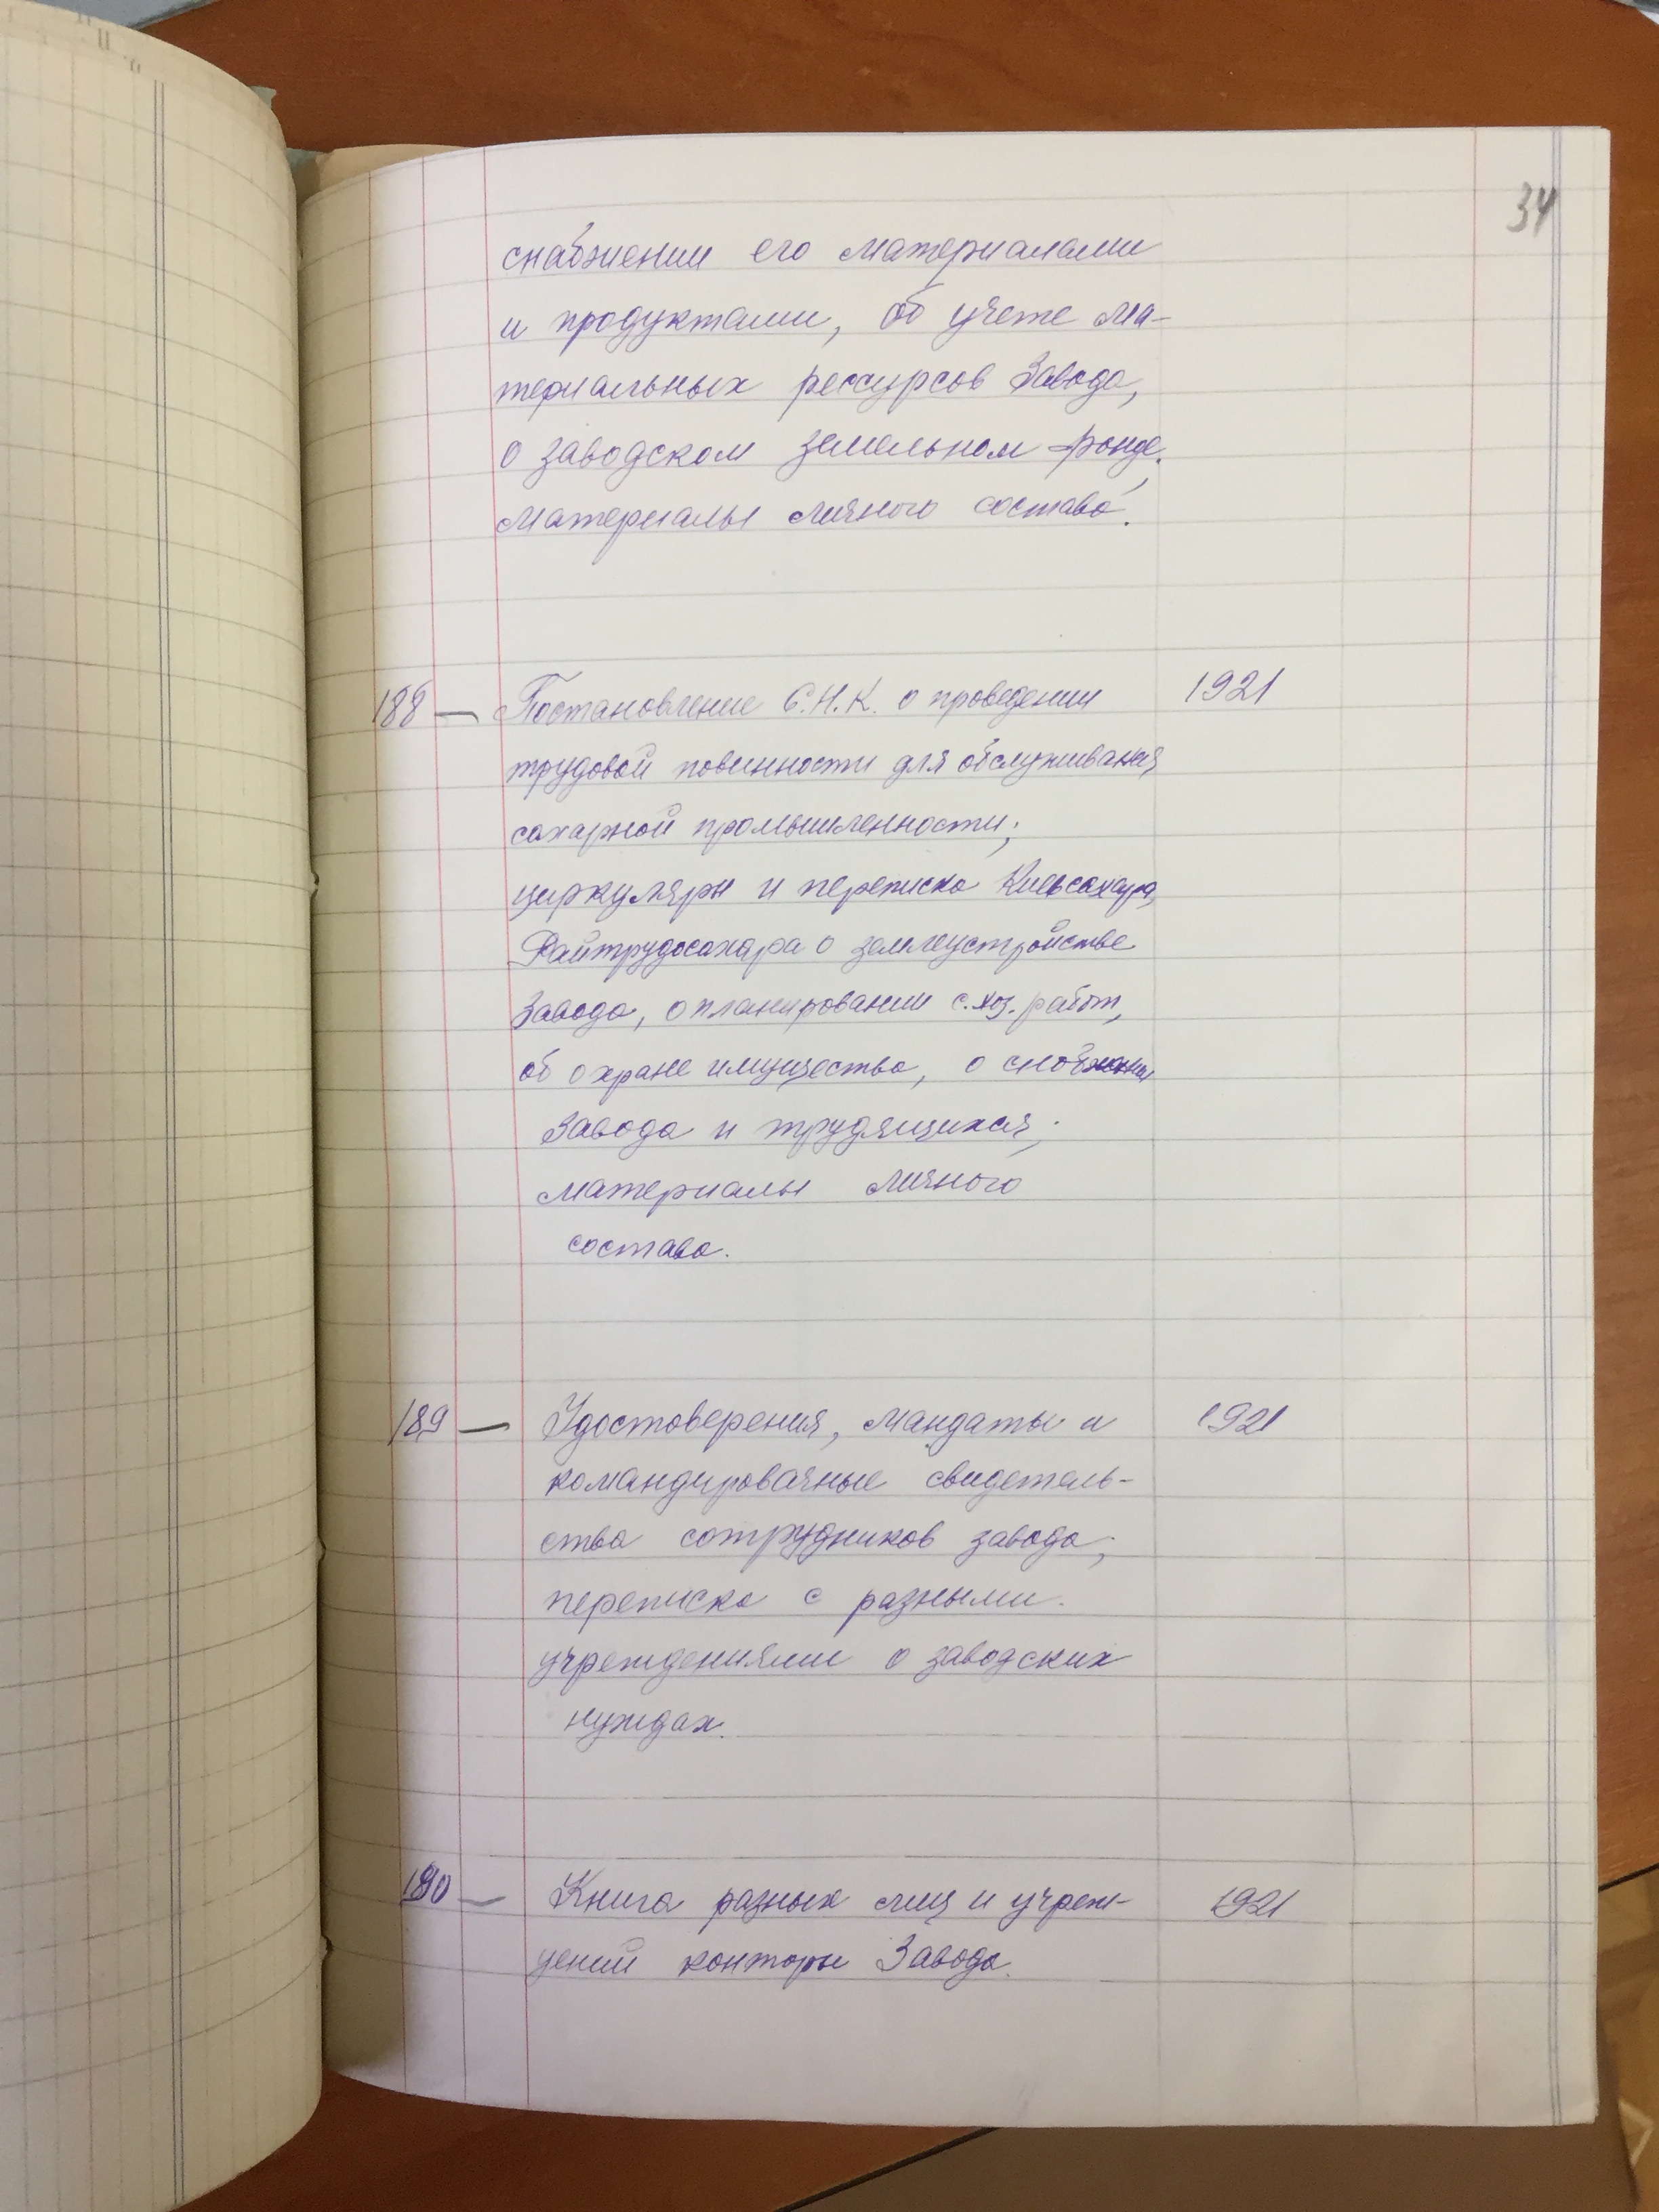 34
снабжении его материалами
и продуктами, об учете ма-
териальных рессурсов Завода,
о заводском земельном фонде.
Материалы личного состава.
188 — Постановление С.Н.К. о проведении 1921
трудовой повинности для обслуживания
сахарной промышленности;
циркуляры и переписка Киевсахара,
Райтрудосахара о землеустройстве
Завода, о планировании с.хоз. работ,
об охране имущества, о снабжении
Завода и трудящихся;
материалы личного
состава.
189 — Удостоверения, мандаты и 1921
командировачные свидетель-
ства сотрудников завода;
переписка с разными
учреждениями о заводских
нуждах.
190 — Книга разных лиц и учреж- 1921
дений конторы Завода.